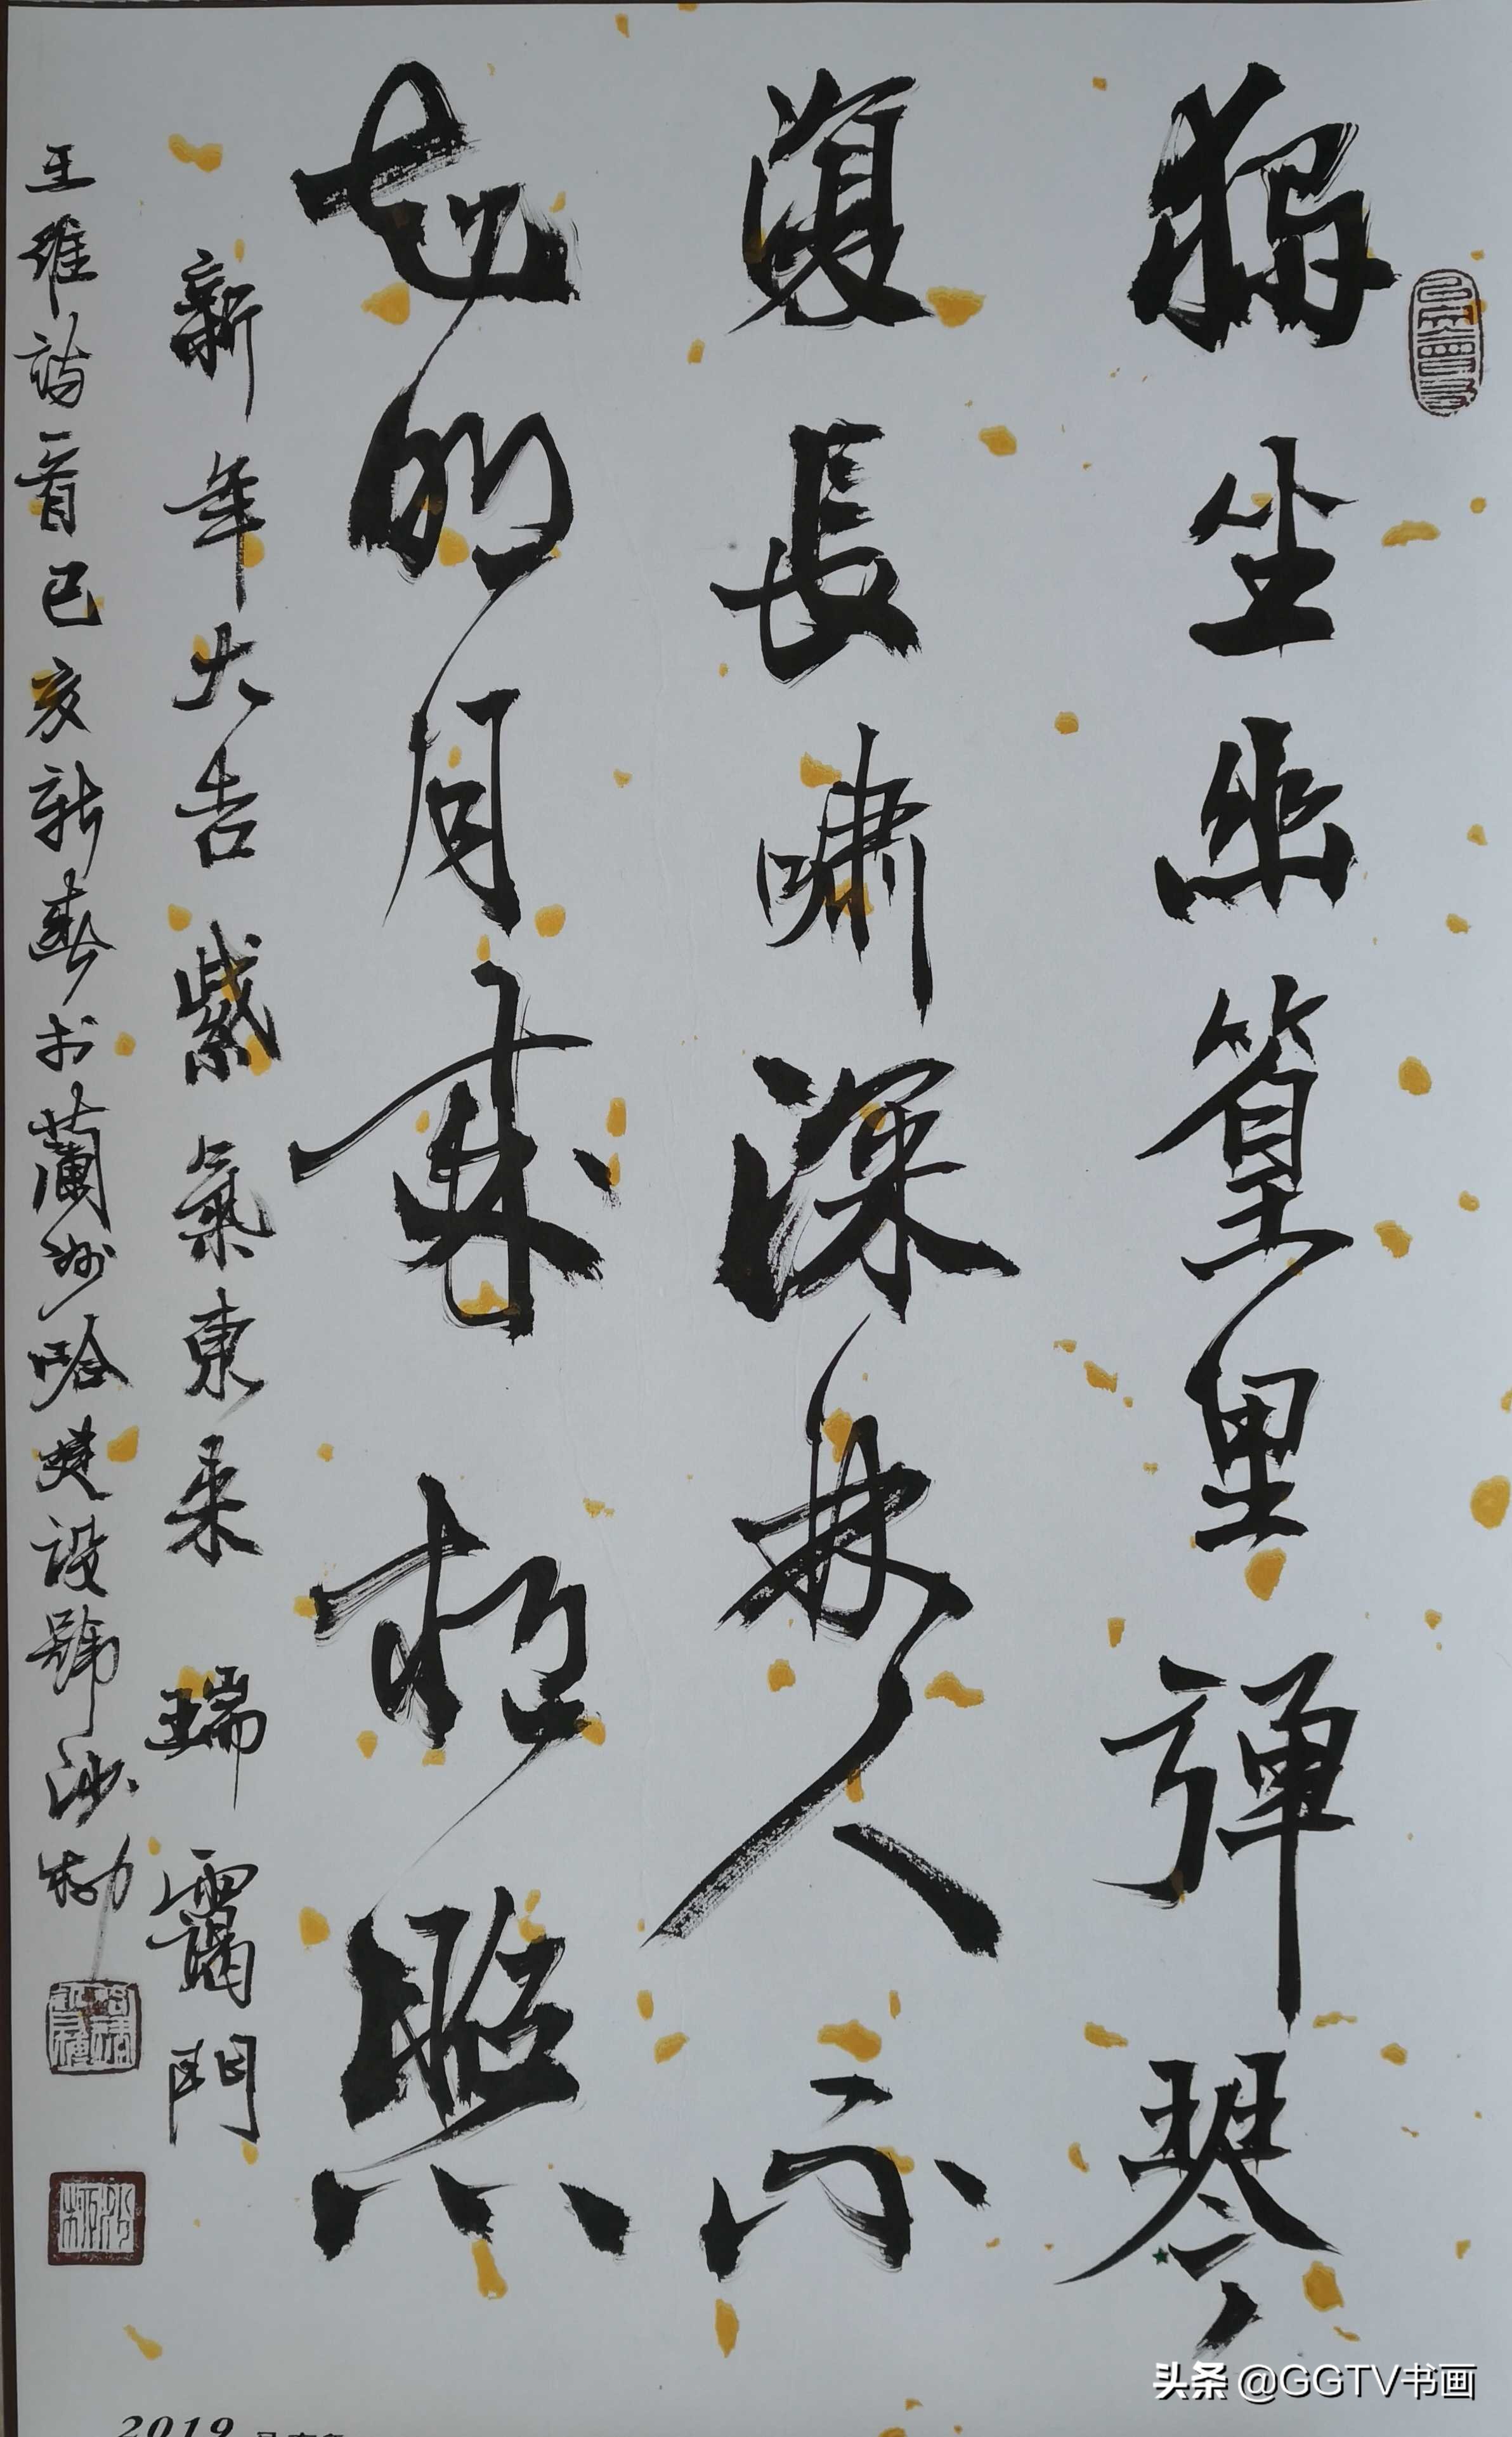 獨坐幽篁里彈琴
復長嘯深林人不
知明月来相照
新年大吉紫氣東来瑞靄門
王維詩一首己亥新春於蘭州哈建設號沙勃
头条 @GGTV书画
2019